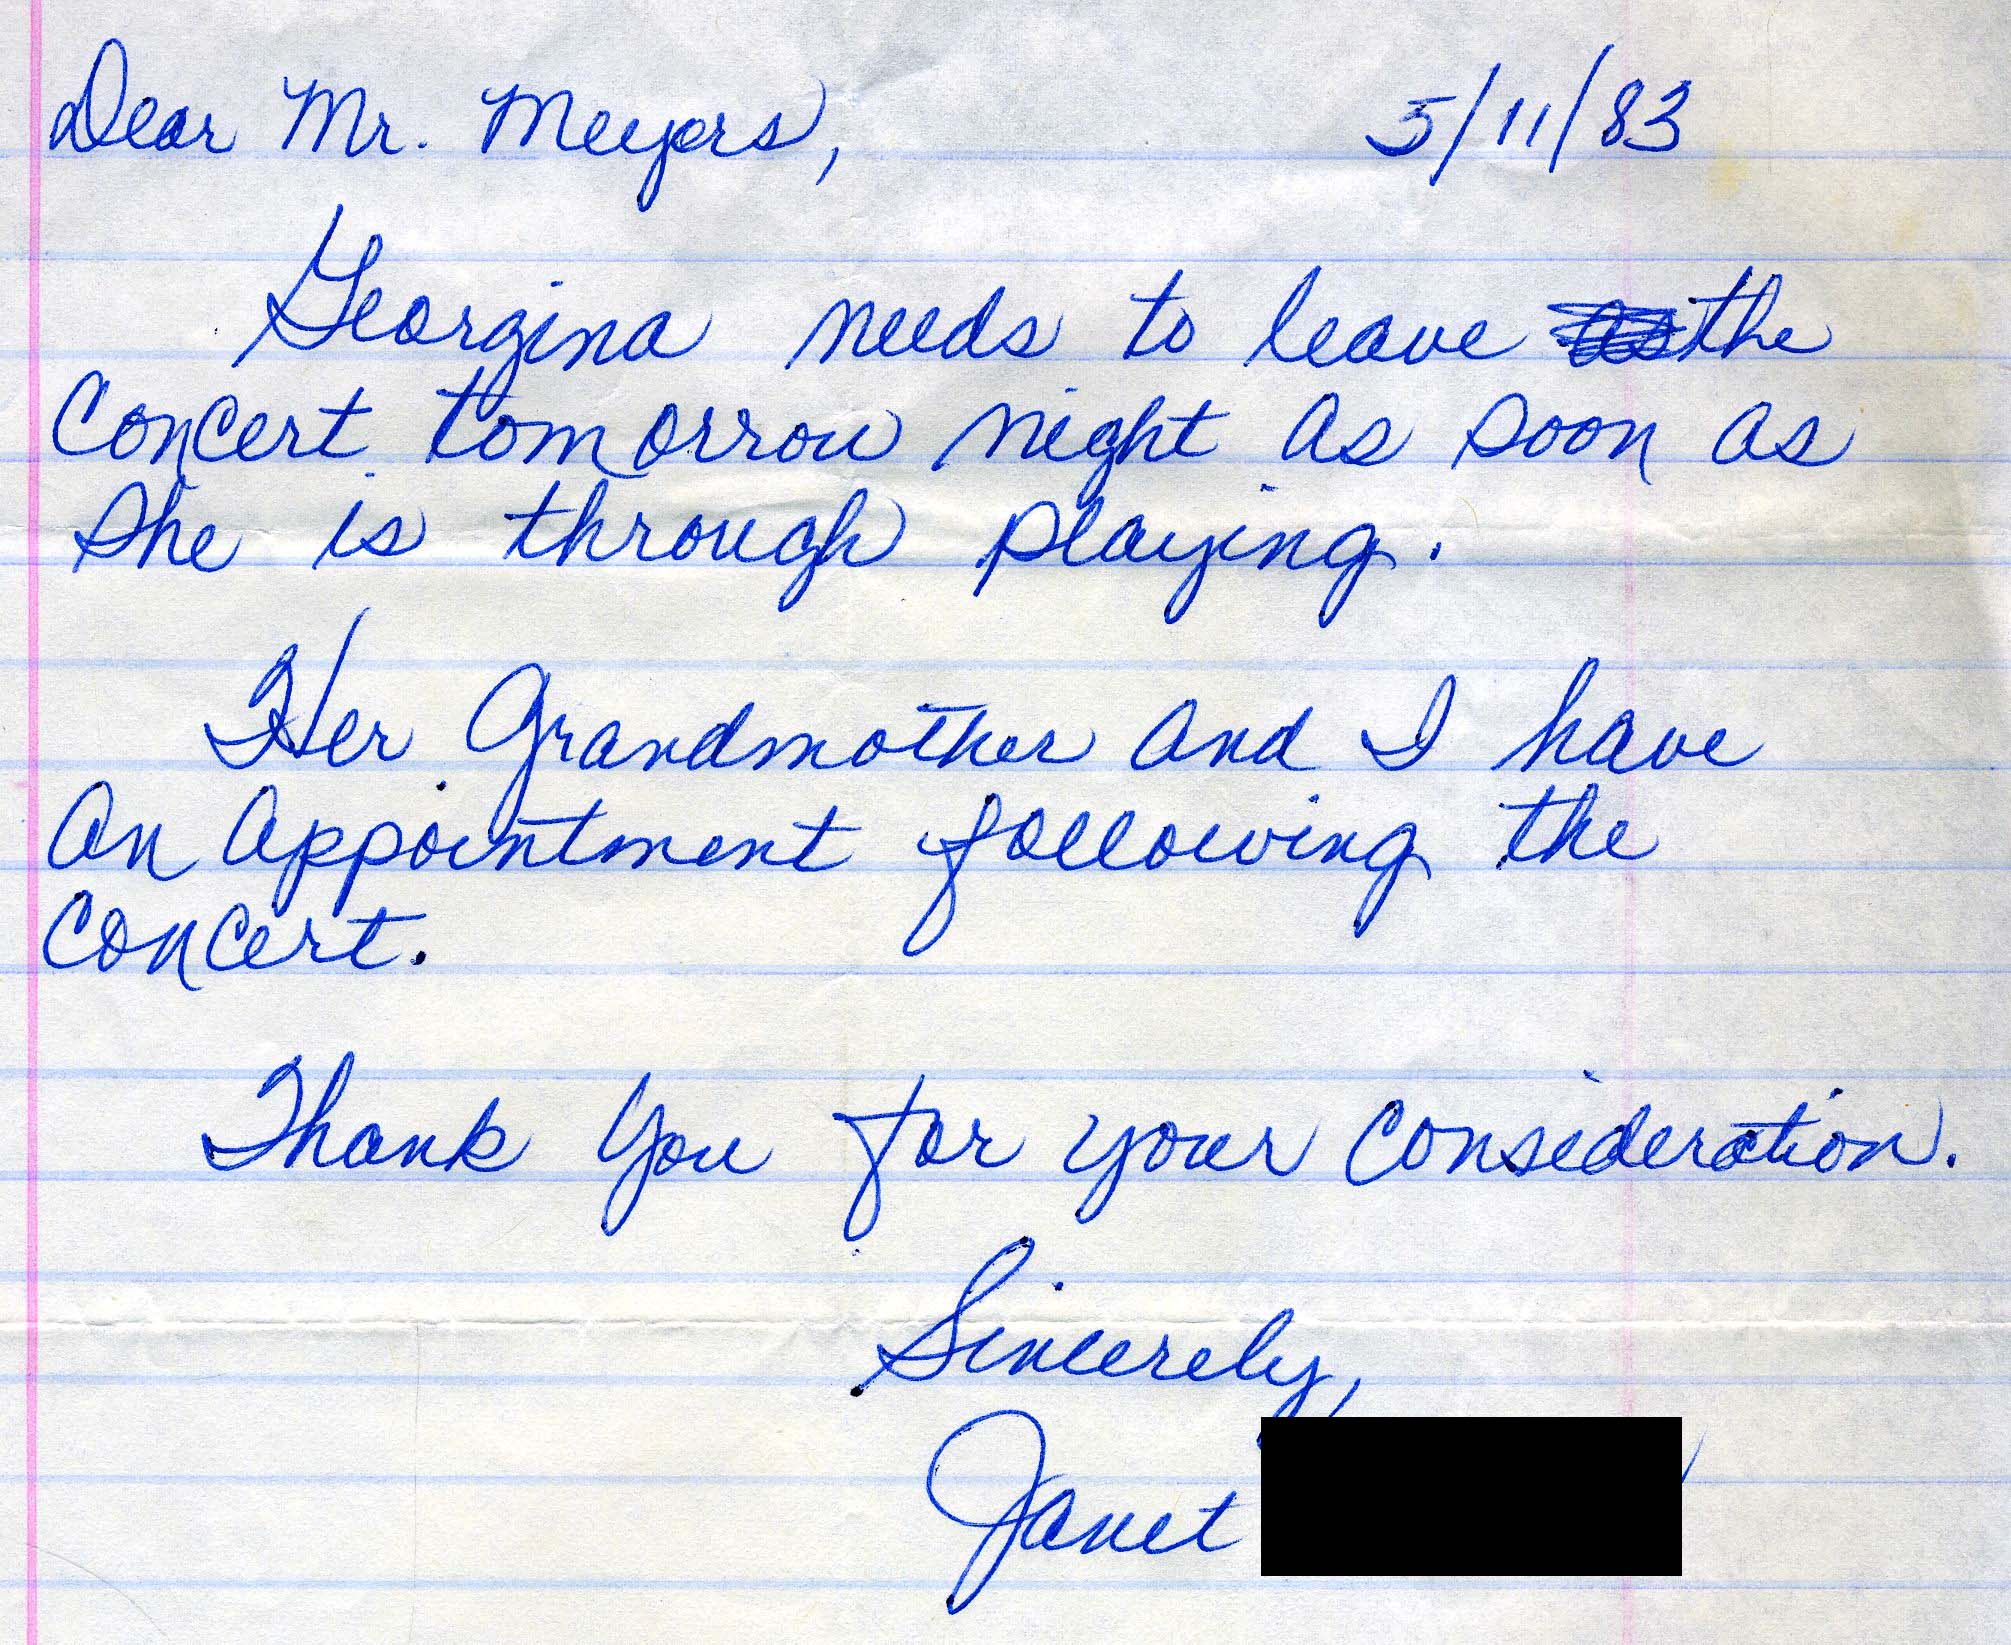 Dear Mr. Meyers, 5/11/83
Georgina needs to leave the
concert tomorrow night as soon as
she is through playing.
Her Grandmother and I have
an appointment following the
concert.
Thank you for your consideration.
Sincerely,
Janet